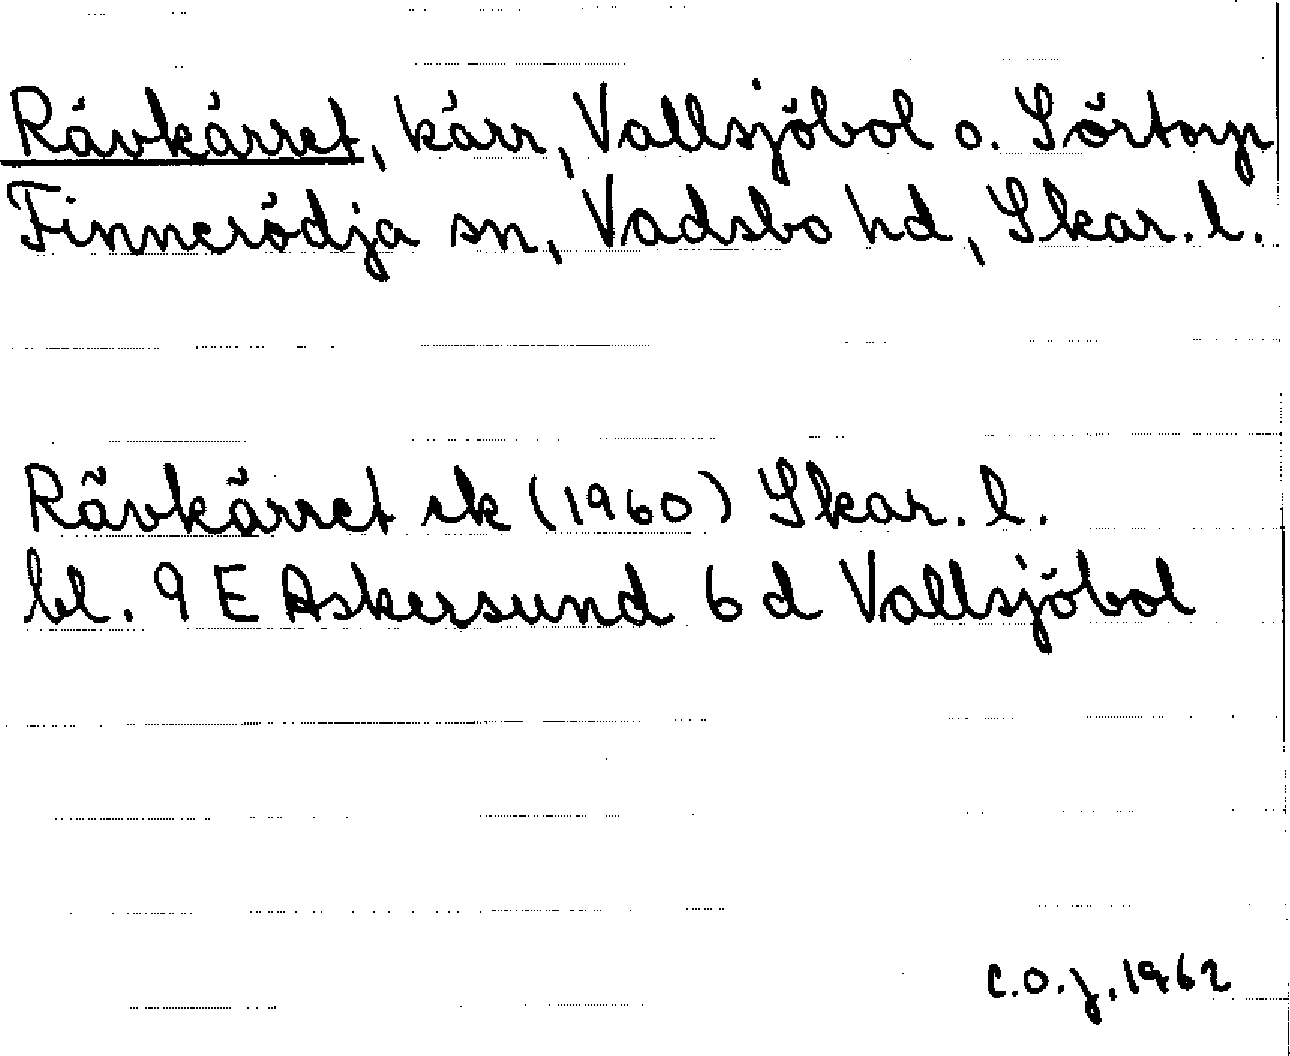 Rävkärret, kärr, Vallsjöbol o. Sörtorp
Finnerödja sn, Vadsbo hd, Skar. l.
Rävkärret ek (1960) Skar. l.
bl. 9 E Askersund 6 d Vallsjöbol
C.O.J. 1962